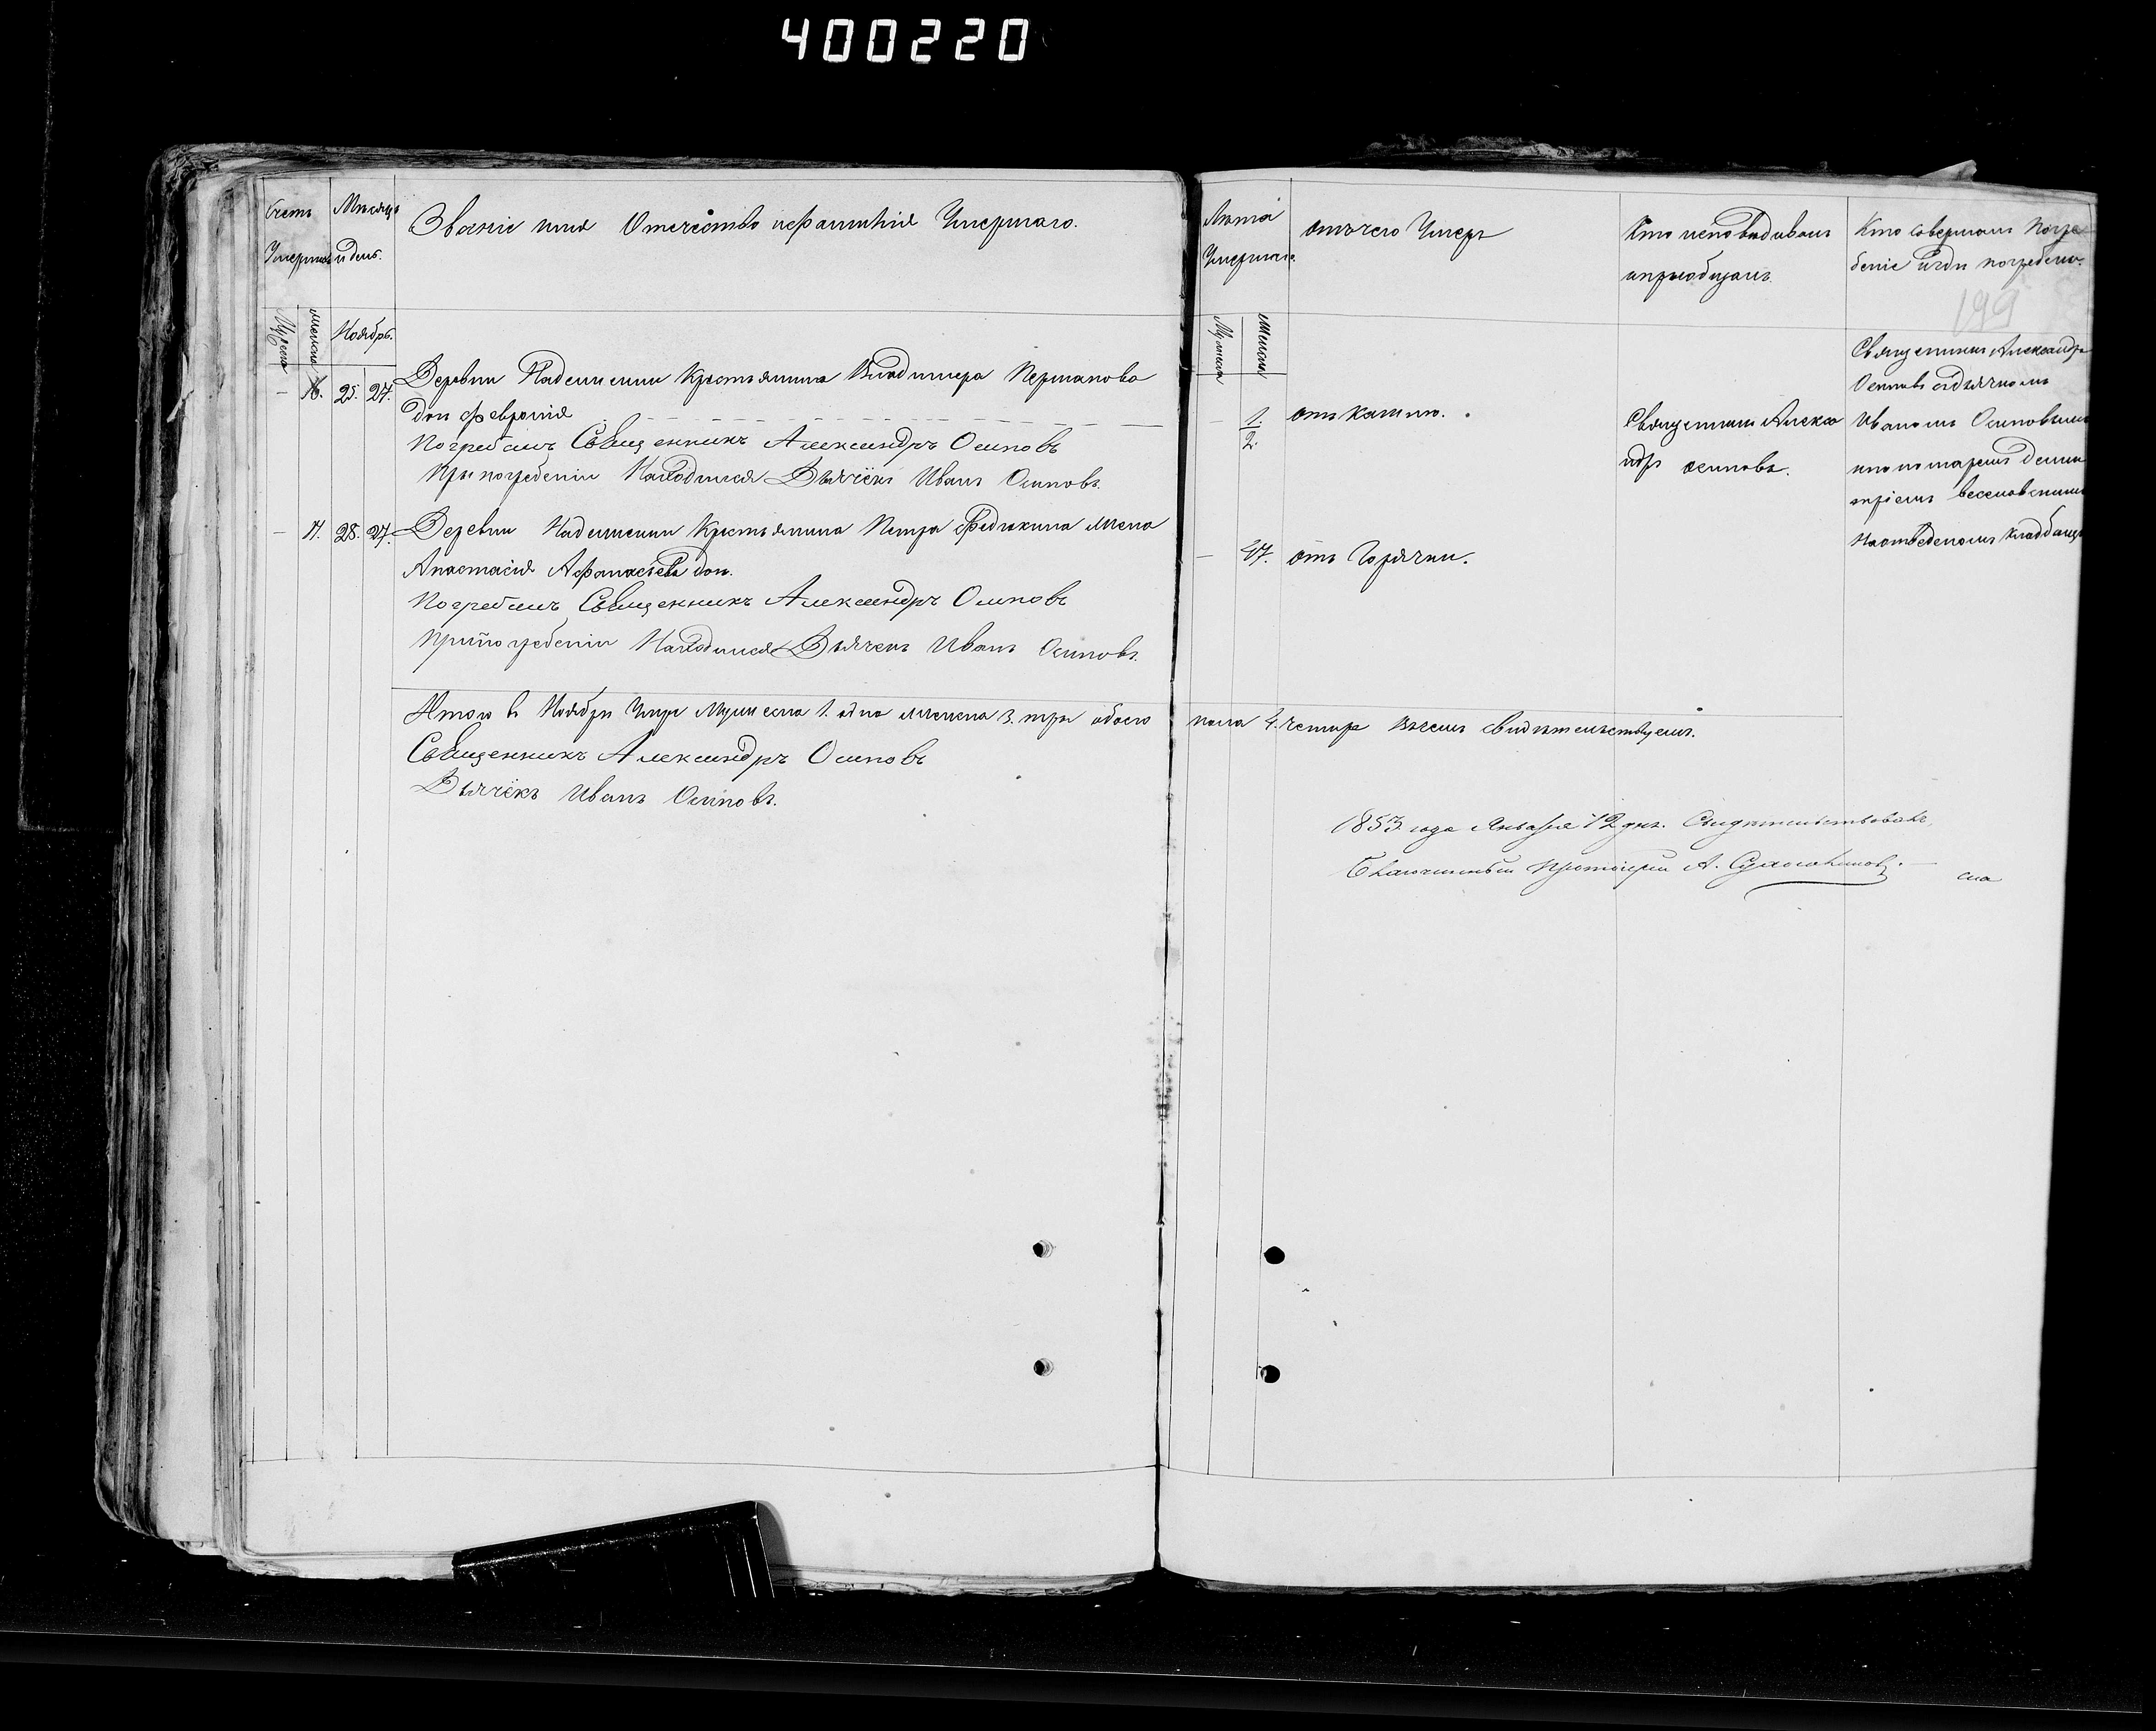 400220
Счетъ Умершихъ
Мѣсяцъ и день.
Званіе имя Отечество и фамилія Умершаго.
Лѣта Умершаго.
отъ чего Умеръ
Кто исповѣдывалъ
и пріобщалъ.
Кто совершалъ Погре
беніе и гдѣ погребены.
199
Мужеска
Женска
Ноябрь.
Мужеска
Женска
– 16. 25. 27. Деревни Крестьянина Владимера
дочь Февронія
Погребалъ Священникъ Александръ Осиповъ
При погребеніи Находился Дьячёкъ Иванъ Осиповъ.
– 1/2. отъ кашлю.
Священникъ Алекса
ндръ Осиповъ.
Священникъ Александръ
Осиповъ съ дьячкомъ
Иваномъ Осиповымъ
и пономаремъ Дими
тріемъ Веселовскимъ
На отведеномъ кладбищѣ
– 17. 28. 27. Деревни Крестьянина Петра Федькина жена
Анастасія Афанасіева дочь.
Погребалъ Священникъ Александръ Осиповъ
При погребеніи Находился Дьячекъ Иванъ Осиповъ.
– 47. отъ Горячки.
Итого в Ноябрѣ Умре Мужеска 1. одна Женска 3. три обоего пола 4. четыре въ чемъ свидѣтельствуемъ.
Священникъ Александръ Осиповъ
Дьячёкъ Иванъ Осиповъ.
1853 года Января 12 дня. Свидѣтельствовалъ
Благочинный Протоіерей А.